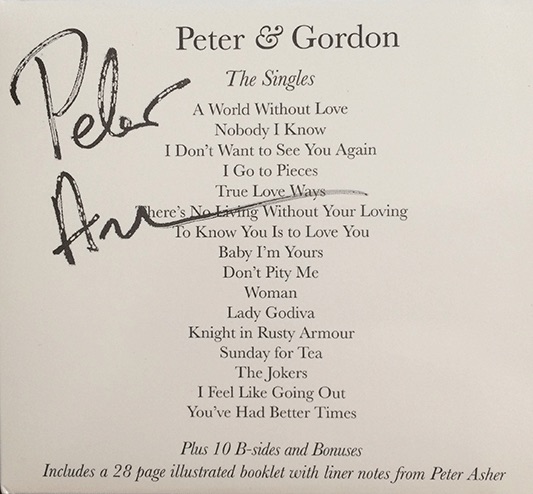 Peter & Gordon
The Singles
A World Without Love
Nobody I Know
I Don't Want to See You Again
I Go to Pieces
True Love Ways
There's No Living Without Your Loving
To Know You Is to Love You
Baby I'm Yours
Don't Pity Me
Woman
Lady Godiva
Knight in Rusty Armour
Sunday for Tea
The Jokers
I Feel Like Going Out
You've Had Better Times
Plus 10 B-sides and Bonuses
Includes a 28 page illustrated booklet with liner notes from Peter Asher
Peter